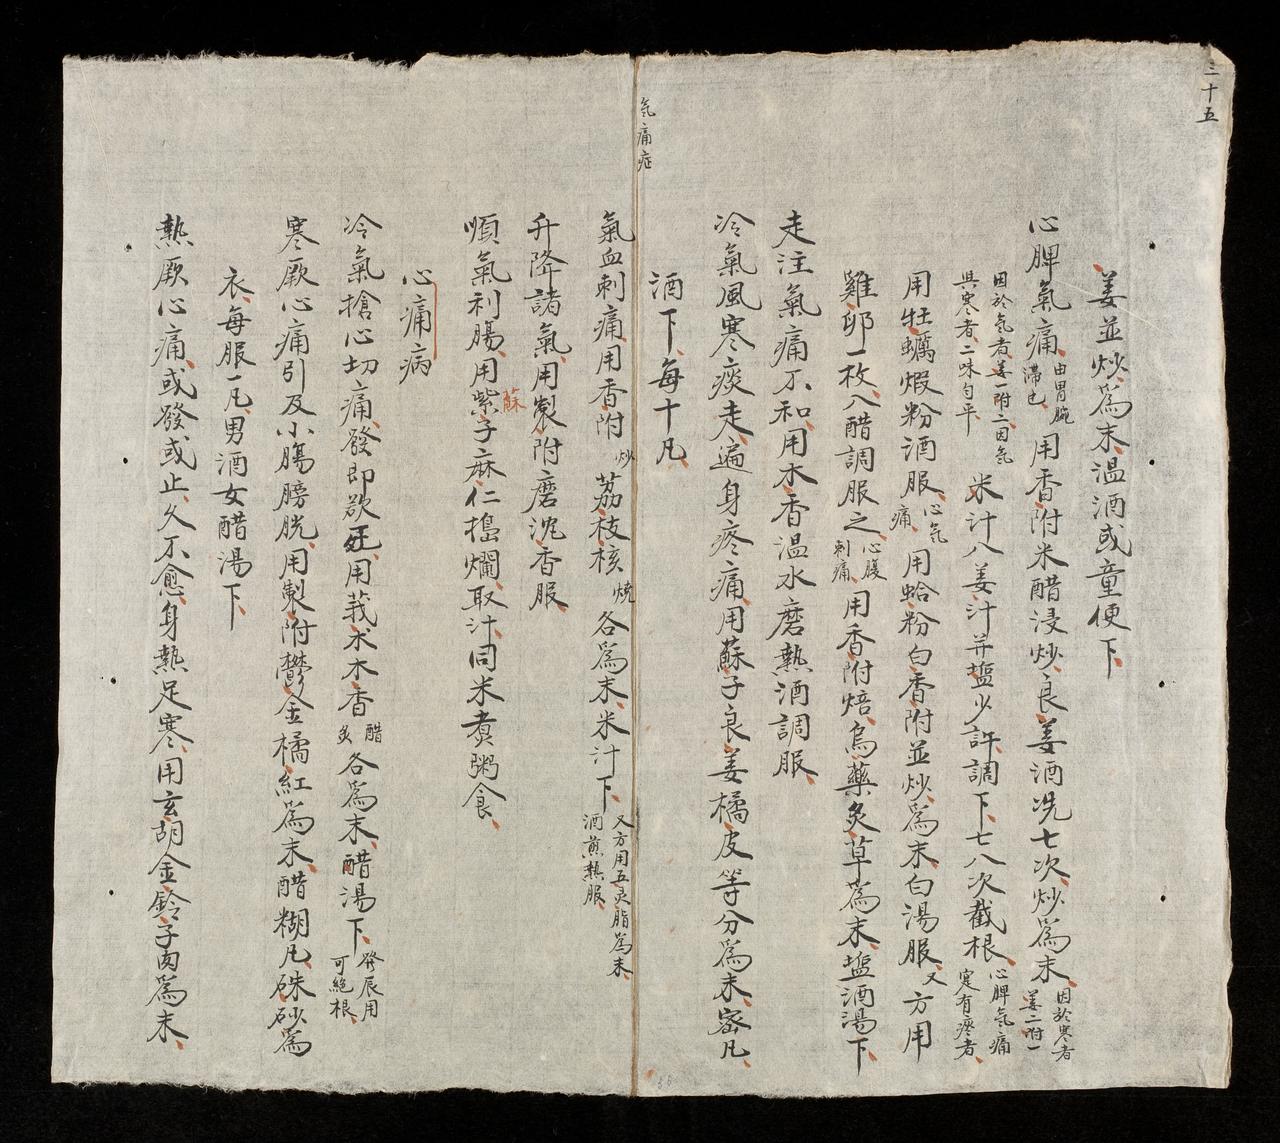 三十五
姜並炒爲末温酒或童便下
心脾氣痛由胃腕滯也用香附米醋浸炒良姜酒洗七次炒爲末因於寒者姜二附一
因於気者姜一附二因気與寒者二味勻平米汁入姜汁并塩少許調下七八次截根心脾気痛寔有疼者
用牡蠣煅粉酒服心気痛用蛤粉白香附並炒爲末白湯服又方用
雞卵一枚入醋調服之心腹刺痛用香附焙烏藥炙草爲末塩酒湯下
走注氣痛不和用木香温水磨熱酒調服
冷氣風寒痰走遍身疼痛用蘇子良姜橘皮等分爲末密凡
酒下每十凡
気痛症
氣血刺痛用香附炒荔枝核燒各爲末米汁下又方用五灵脂爲末酒煎熱服
升降諸氣用製附磨沉香服
順氣利腸用紫蘇子麻仁搗爛取汁同米煮粥食
心痛病
冷氣搶心切痛發即欲死用莪术木香醋炙各爲末醋湯下發辰用可絕根
寒厥心痛引及小腸膀胱用製附鬱金橘紅爲末醋糊凡硃砂爲
衣每服一凡男酒女醋湯下
熱厥心痛或發或止久不愈身熱足寒用玄胡金鈴子肉爲末